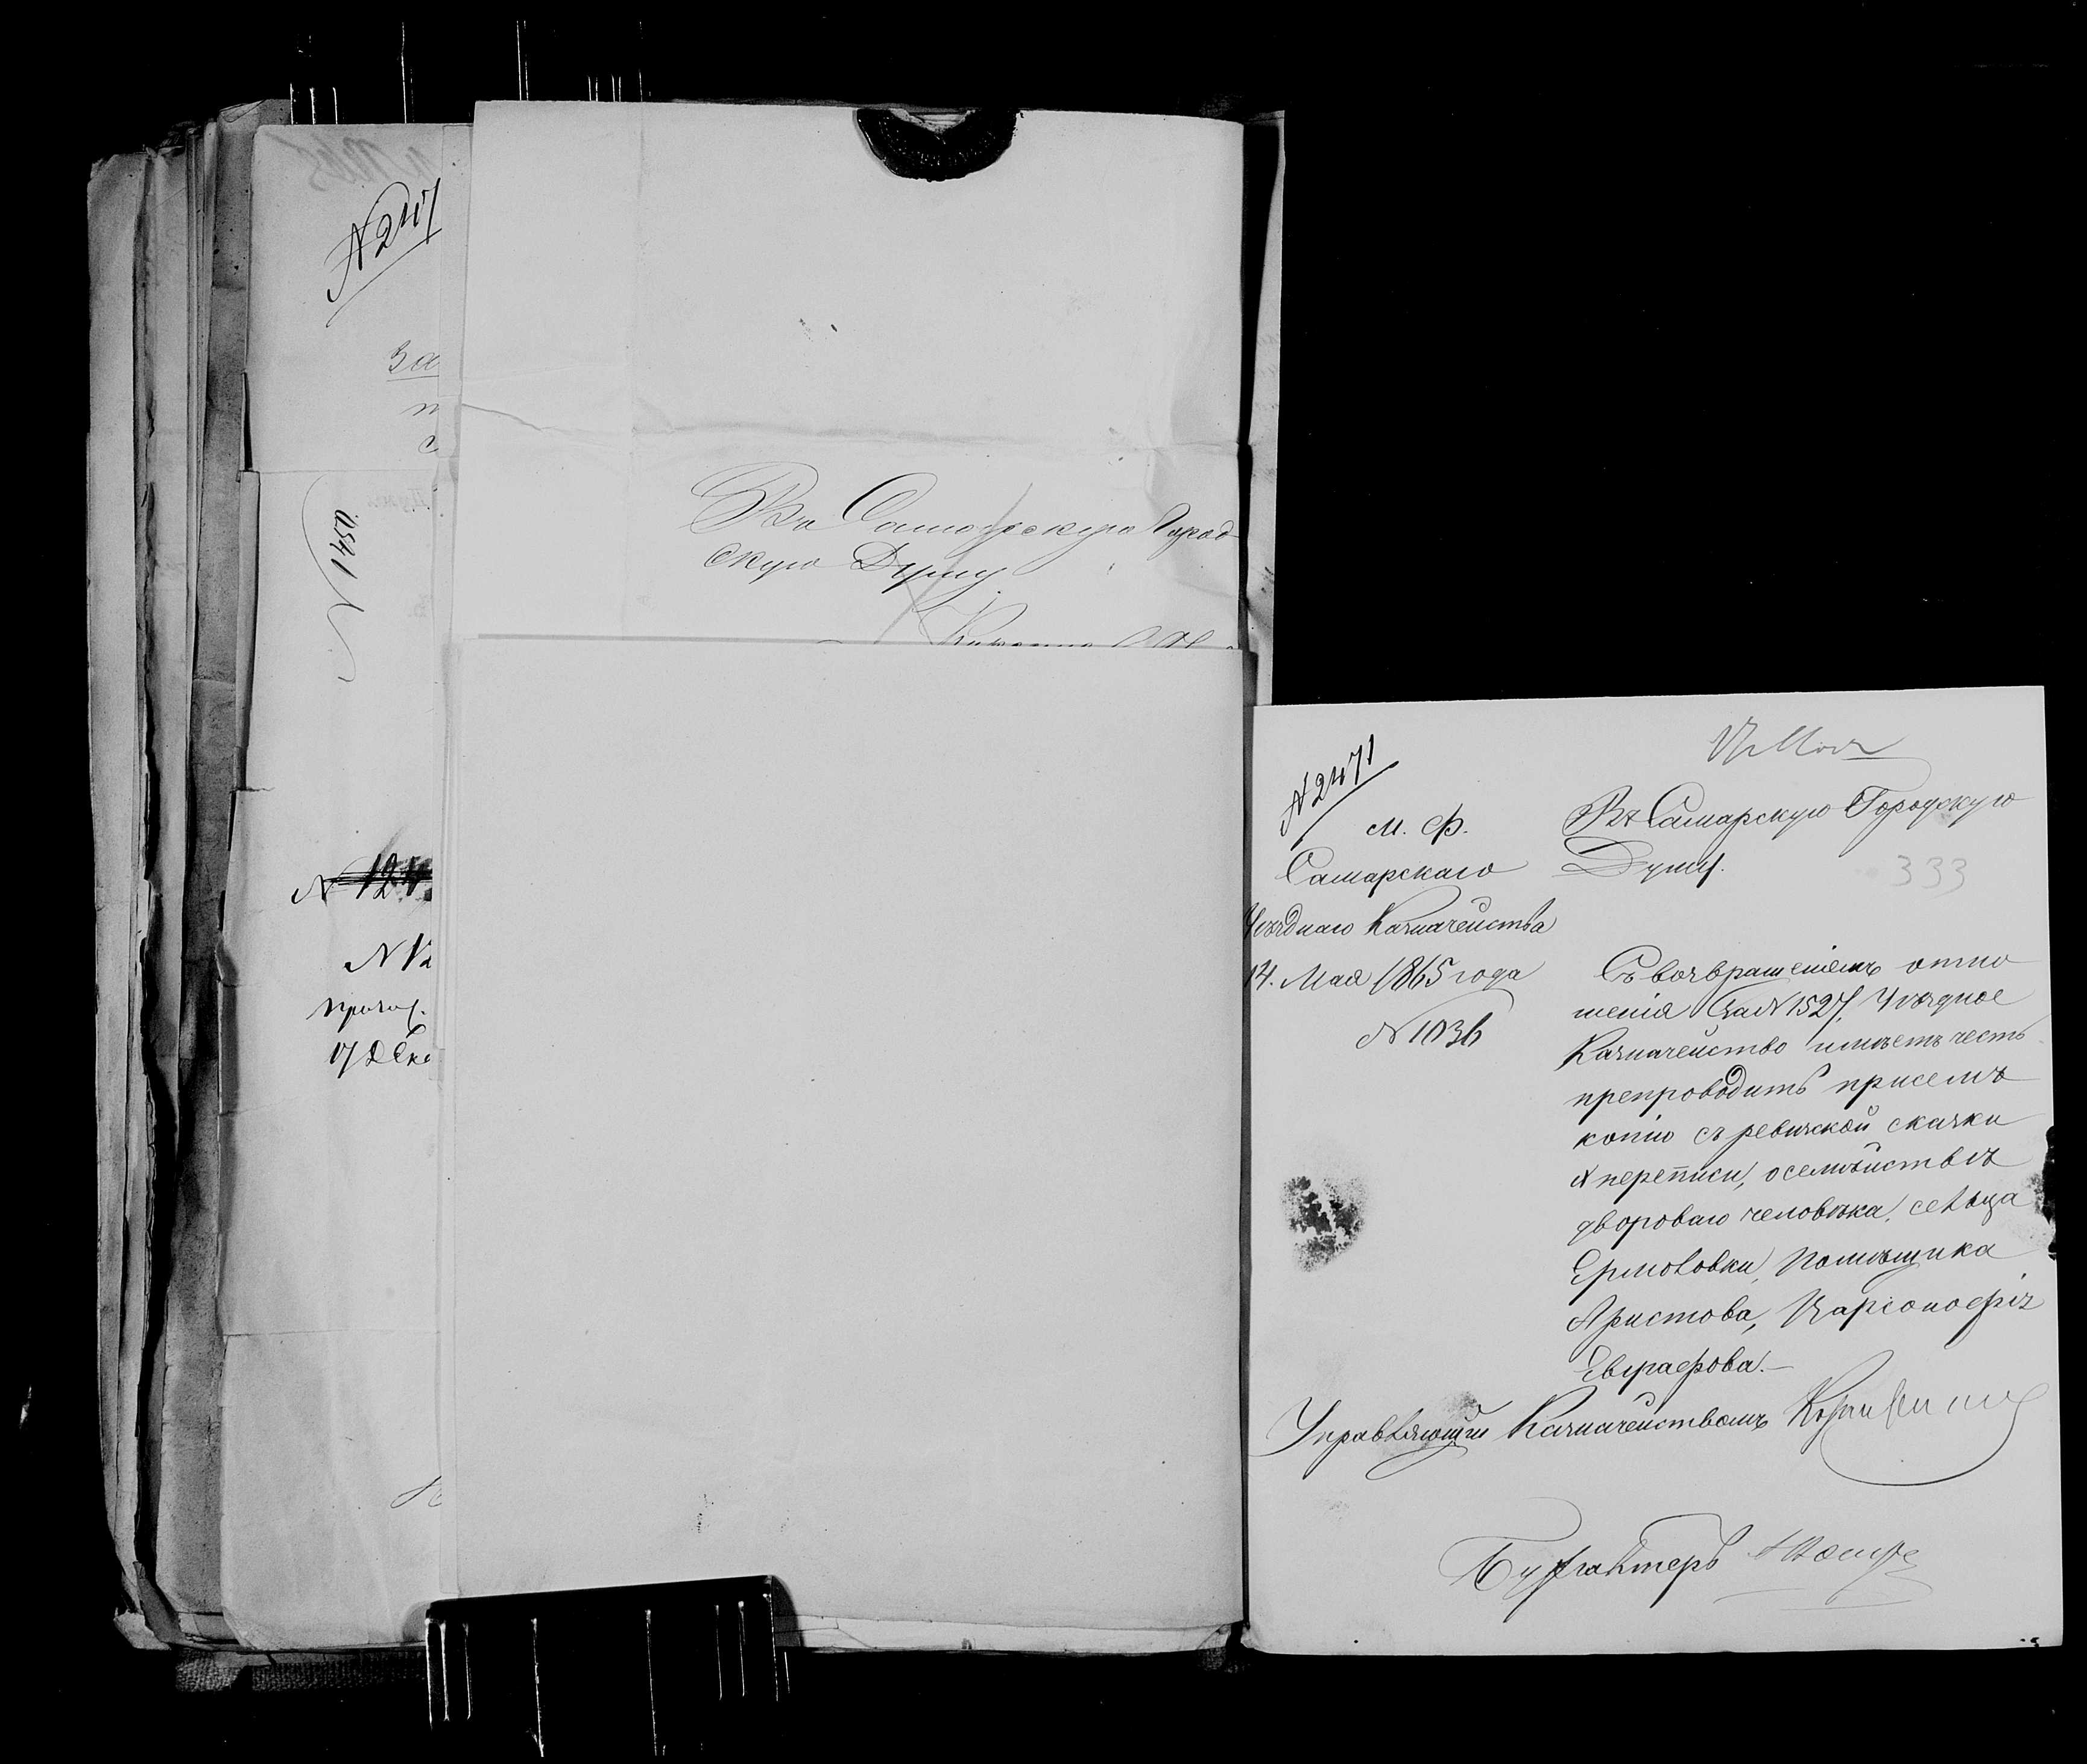 № 247
за
№ 1450
№ 124
№ 12
17 Дек
Въ Самарскую Город
скую Думу
№ 2471
17 Мая
М. Ф.
Самарскаго
Уѣзднаго Казначейства
14. Мая 1865 года
№ 1036
Въ Самарскую Городскую
Думу.
333
Съ возвращеніемъ отно
шенія за № 1527, Уѣздное
Казначейство имѣетъ честь
препроводить присемъ
копію съ ревизской сказки
X переписи, о семѣйствѣ
двороваго человѣка, сельца
Ермоловки, помѣщика
Аристова,
Евграфова. —
Управляющій Казначействомъ
Бухгалтеръ